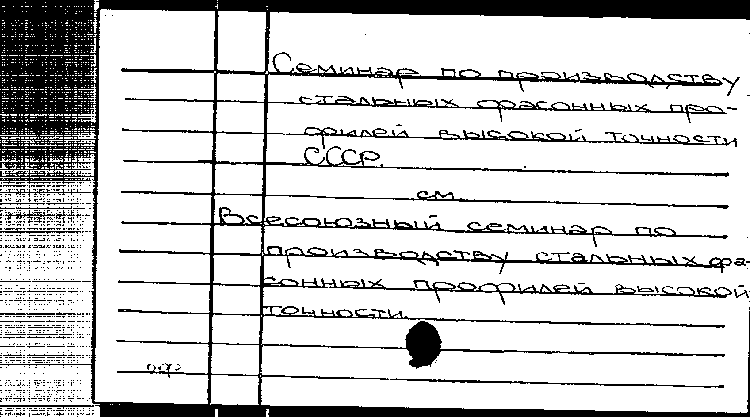 Семинар по производству
стальных фасонных про-
филей высокой точности
СССР.
см.
Всесоюзный семинар по
производству стальных фа-
сонных профилей высокой
точности.